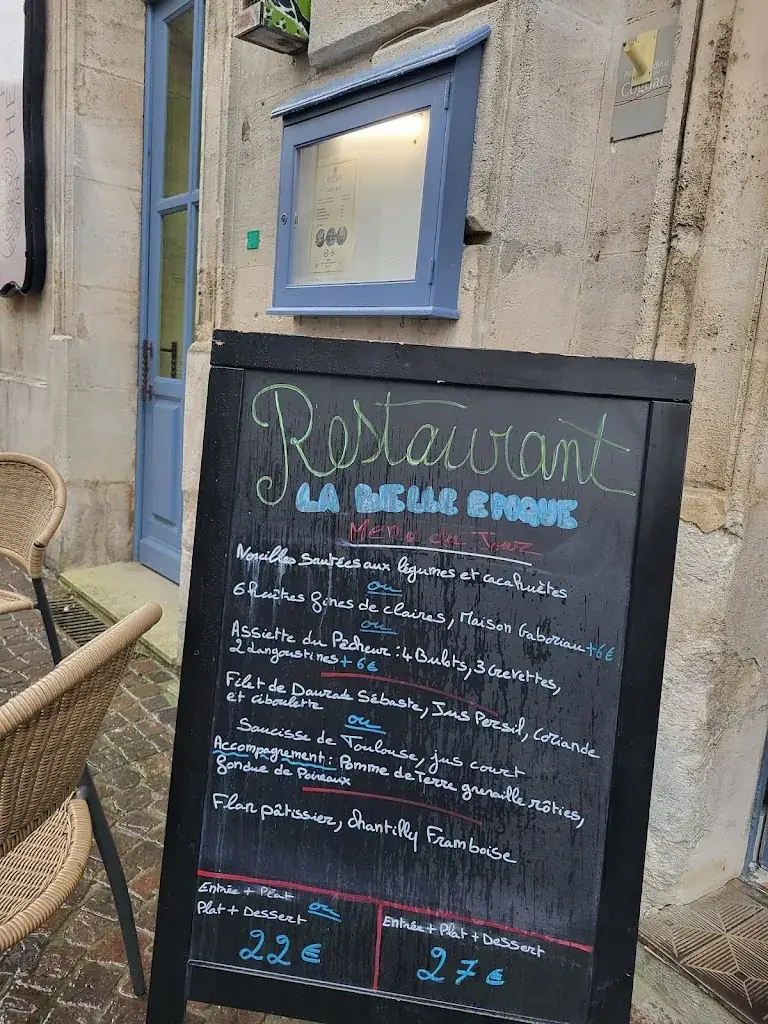 Cognac
Restaurant
LA BELLE EPOQUE
Menu du Jour
Nouilles sautées aux légumes et cacahuètes
ou
6 huîtres fines de claires, Maison Gaboriau +6€
ou
Assiette du Pêcheur : 4 Bulots, 3 Crevettes,
2 Langoustines +6€
Filet de Daurade Sébaste, Jus Persil, Coriande
et ciboulette
ou
Saucisse de Toulouse, jus court
Accompagnement : Pomme de Terre grenaille rôties,
fondue de Poireaux
Flan pâtissier, Chantilly Framboise
Entrée + Plat
ou
Plat + Dessert
22 €
Entrée + Plat + Dessert
27 €